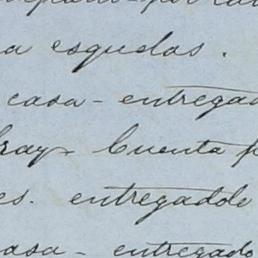 a esquelas.
casa - entregad
Cuenta p
es. entregadde
casa - entregado